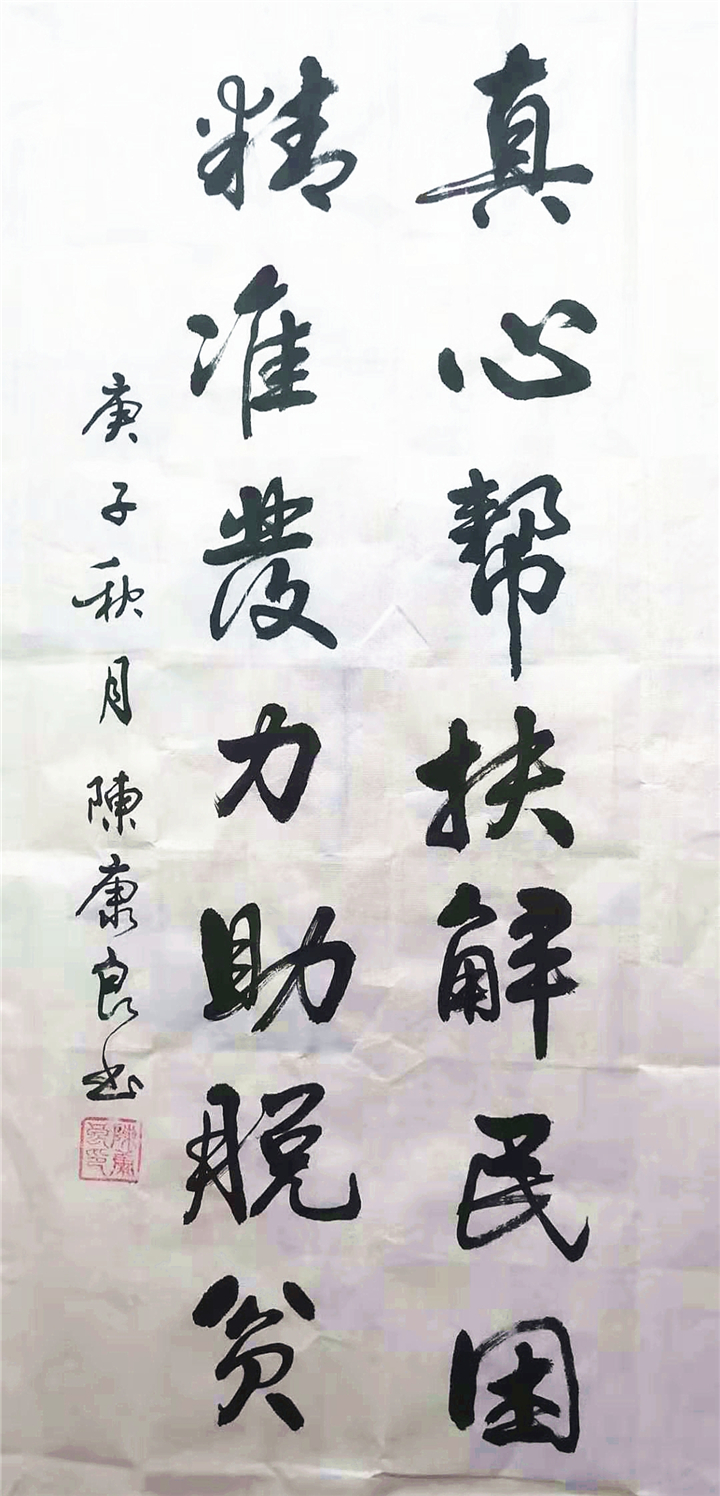 真心帮扶解民困
精准發力助脱贫
庚子秋月陳康良书
陳康良印